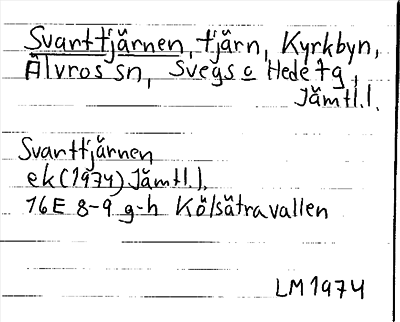 Svarttjärnen, tjärn, Kyrkbyn,
Älvros sn, Svegs o Hede tg,
Jämtl.l.
Svarttjärnen
ek(1974) Jämtl.l.
16E 8-9 g-h Kölsätravallen
LM 1974